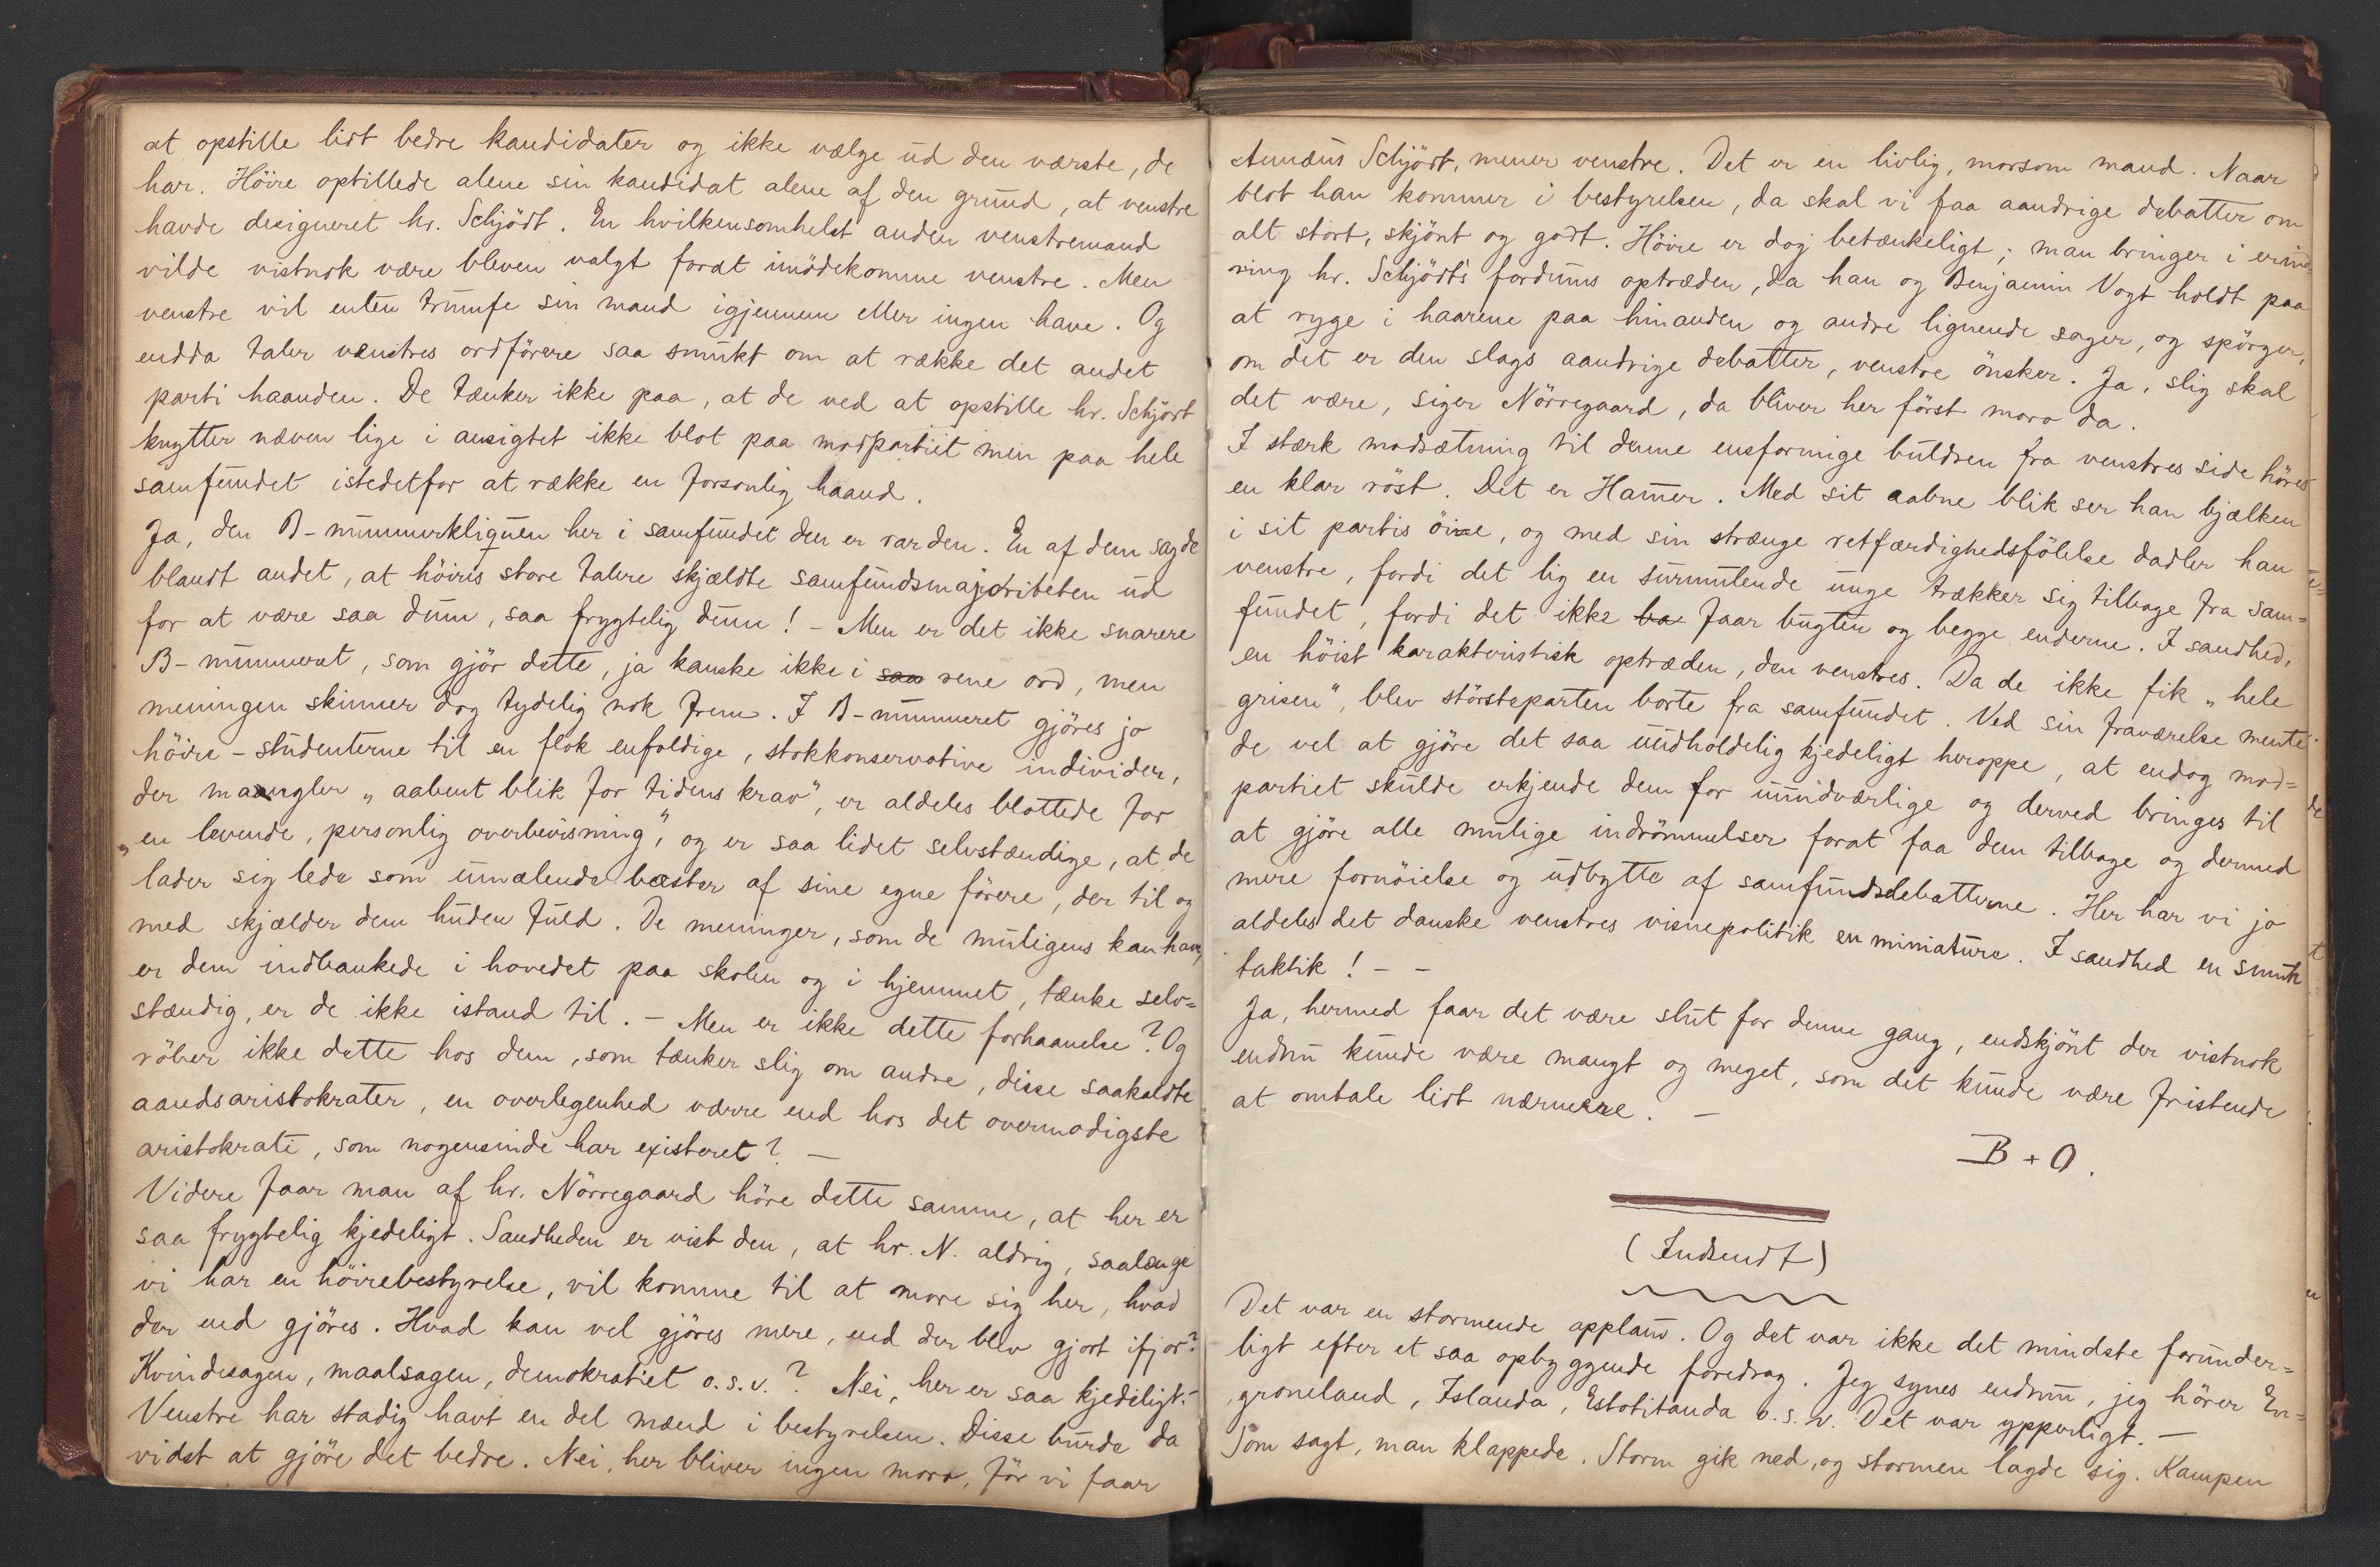 at opstille lidt bedre kandidater og ikke vælge ud den værste, de
har. Höire optillede alene sin kandidat alene af den grund, at venstre
havde designeret hr. Schjödt. En hvilkensomhelst anden venstremand
vilde vistnok være bleven valgt forat imödekomme venstre. Men
venstre vil enten trumfe sin mand igjennem eller ingen have. Og
endda taler venstres ordförere saa smukt om at række det andet
parti haanden. De tænker ikke paa, at de ved at opstille hr. Schjödt
knytter næven lige i ansigtet ikke blot paa modpartiet men paa hele
samfundet istedetfor at række en forsonlig haand.
Ja, den B-nummerkliquen her i samfundet den er rar den. En af dem sagde
blandt andet, at höires store talere skjældte samfundsmajoriteten ud
for at være saa dum, saa frygtelig dum! - Men er det ikke snarere
B-nummeret, som gjör dette, ja kanske ikke i saa rene ord, men
meningen skinner dog tydelig nok frem. I B-nummeret gjöres jo
höire-studenterne til en flok enfoldige, stokkonservative individer,
der mangler „aabent blik for tidens krav", er aldeles blottede for
„en levende, personlig overbevisning", og er saa lidet selvstændige, at de
lader sig lede som umælende bæster af sine egne förere, der til og
med skjælder dem huden fuld. De meninger, som de muligens kan have,
er dem indbankede i hovedet paa skolen og i hjemmet, tænke selv=
stændig, er de ikke istand til. - Men er ikke dette forhaanelse? Og
röber ikke dette hos dem, som tænker slig om andre, disse saakaldte
aandsaristokrater, en overlegenhed værre end hos det overmodigste
aristokrati, som nogensinde har existeret? -
Videre faar man af hr. Nörregaard höre dette samme, at her er
saa frygtelig kjedeligt. Sandheden er vist den, at hr. N. aldrig, saalænge
vi har en höirebestyrelse, vil komme til at more sig her, hvad
der end gjöres. Hvad kan vel gjöres mere, end der blev gjort ifjor?
Kvindesagen, maalsagen, demokratiet o.s.v.? Nei, her er saa kjedeligt. -
Venstre har stadig havt en del mænd i bestyrelsen. Disse burde da
vidst at gjöre det bedre. Nei, her bliver ingen moro, för vi faar
Annæus Schjödt, mener venstre. Det er en livlig, morsom mand. Naar
blot han kommer i bestyrelsen, da skal vi faa aandrige debatter om
alt stort, skjönt og godt. Höire er dog betænkeligt; man bringer i erind=
ring hr. Schjödt's fordums optræden, da han og Benjamin Vogt holdt paa
at ryge i haarene paa hinanden og andre lignende sager, og spörger,
om det er den slags aandrige debatter, venstre önsker. Ja, slig skal
det være, siger Nörregaard, da bliver her först moro da.
I stærk modsætning til denne ensformige buldren fra venstres side höres
en klar röst. Det er Hamer. Med sit aabne blik ser han bjælken
i sit partis öie, og med sin strænge retfærdighedsfölelse dadler han
venstre, fordi det lig en surmulende unge trækker sig tilbage fra sam=
fundet, fordi det ikke ba faar bugten og begge enderne. I sandhed,
en höist karakteristisk optræden, den venstres. Da de ikke fik „hele
grisen", blev störsteparten borte fra samfundet. Ved sin fraværelse mente
de vel at gjöre det saa uudholdelig kjedeligt heroppe, at endog mod=
partiet skulde erkjende dem for uundværlige og derved bringes til
at gjöre alle mulige indrömmelser forat faa dem tilbage og dermed
mere fornöielse og udbytte af samfundsdebatterne. Her har vi jo
aldeles det danske venstres visnepolitik en miniature. I sandhed en smuk
taktik! - -
Ja, hermed faar det være slut for denne gang, endskjönt der vistnok
endnu kunde være mangt og meget, som det kunde være fristende
at omtale lidt nærmere. -
B + O.
(Indsendt)
Det var en stormende applaus. Og det var ikke det mindste forunder=
ligt efter et saa opbyggende foredrag. Jeg synes endnu, jeg hörer En=
groneland, Islanda, Estotilanda o.s.v. Det var ypperligt. -
Som sagt, man klappede. Storm gik ned, og stormen lagde sig. Kampen